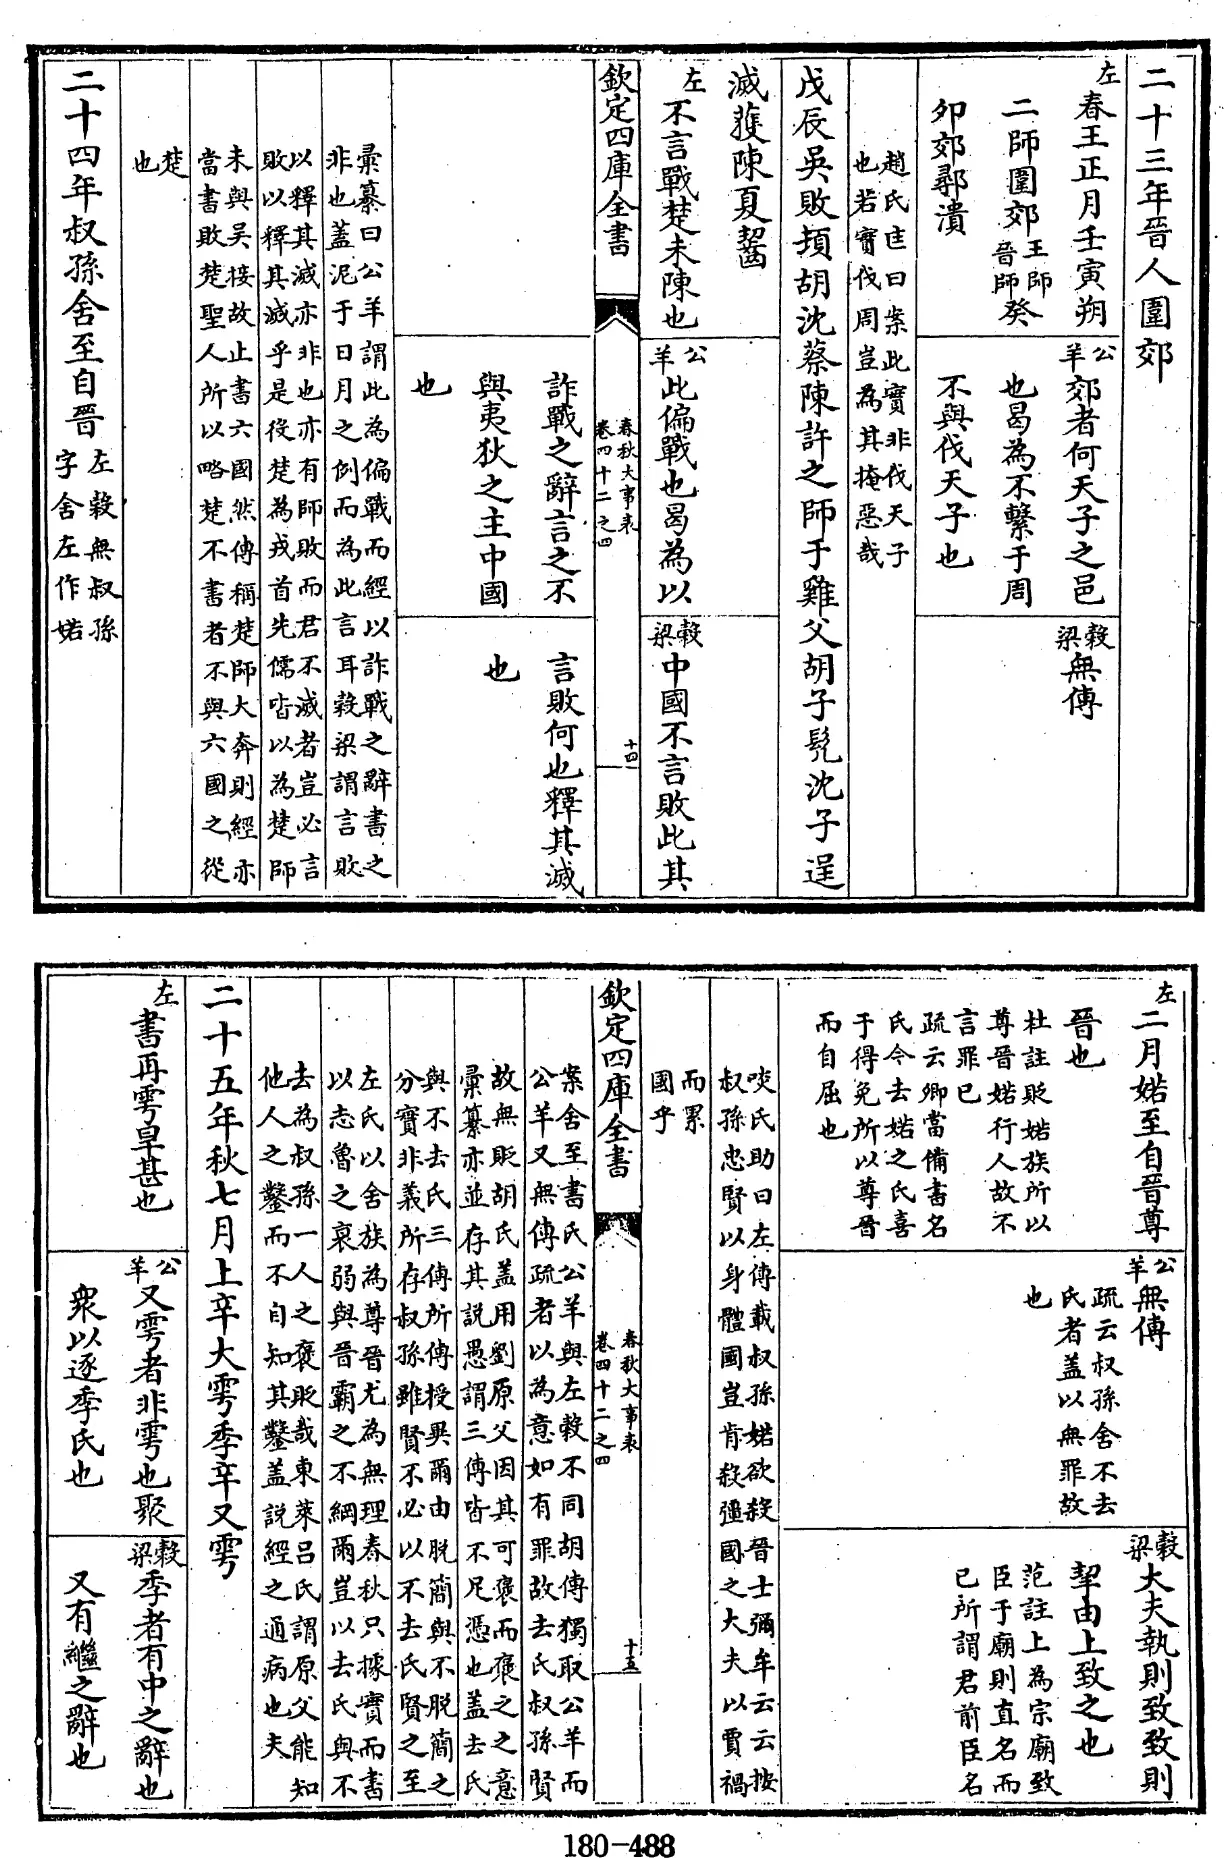 二十三年晉人圍郊
左
春王正月壬寅朔
二師圍郊王師
晉師
癸
卯郊鄩潰
公
羊
郊者何天子之邑
也曷為不繫于周
不與伐天子也
穀
梁
無傳
趙氏匡曰案此實非伐天子
也若實伐周豈為其掩惡哉
戊辰吳敗頓胡沈蔡陳許之師于雞父胡子髡沈子逞
滅獲陳夏齧
左
不言戰楚未陳也
公
羊
此偏戰也曷為以
穀
梁
中國不言敗此其
欽定四庫全書
春秋大事表
卷四十二之四
十四
詐戰之辭言之不
與夷狄之主中國
也
言敗何也釋其滅
也
彚纂曰公羊謂此為偏戰而經以詐戰之辭書之
非也蓋泥于日月之例而為此言耳穀梁謂言敗
以釋其滅亦非也亦有師敗而君不滅者豈必言
敗以釋其滅乎是役楚為戎首先儒皆以為楚師
未與吳接故止書六國然傳稱楚師大奔則經亦
當書敗楚聖人所以略楚不書者不與六國之從
楚
也
二十四年叔孫舍至自晉
左穀無叔孫
字舍左作婼
左
二月婼至自晉尊
晉也
杜註貶婼族所以
尊晉婼行人故不
言罪已
疏云卿當備書名
氏今去婼之氏喜
于得免所以尊晉
而自屈也
公
羊
無傳
疏云叔孫舍不去
氏者蓋以無罪故
也
穀
梁
大夫執則致致則
挈由上致之也
范註上為宗廟致
臣于廟則直名而
已所謂君前臣名
啖氏助曰左傳載叔孫婼欲殺晉士彌牟云云按
叔孫忠賢以身體國豈肯殺彊國之大夫以賈禍
而累
國乎
欽定四庫全書
春秋大事表
卷四十二之四
十五
案舍至書氏公羊與左穀不同胡傳獨取公羊而
公羊又無傳疏者以為意如有罪故去氏叔孫賢
故無貶胡氏蓋用劉原父因其可褒而褒之之意
彚纂亦並存其說愚謂三傳皆不足憑也蓋去氏
與不去氏三傳所傳授異爾由脫簡與不脫簡之
分實非義所存叔孫雖賢不必以不去氏賢之至
左氏以舍族為尊晉尤為無理春秋只據實而書
以志魯之衰弱與晉霸之不綱爾豈以去氏與不
去為叔孫一人之褒貶哉東萊呂氏謂原父能知
他人之鑿而不自知其鑿蓋說經之通病也夫
二十五年秋七月上辛大雩季辛又雩
左
書再雩旱甚也
公
羊
又雩者非雩也聚
衆以逐季氏也
穀
梁
季者有中之辭也
又有繼之辭也
180-488